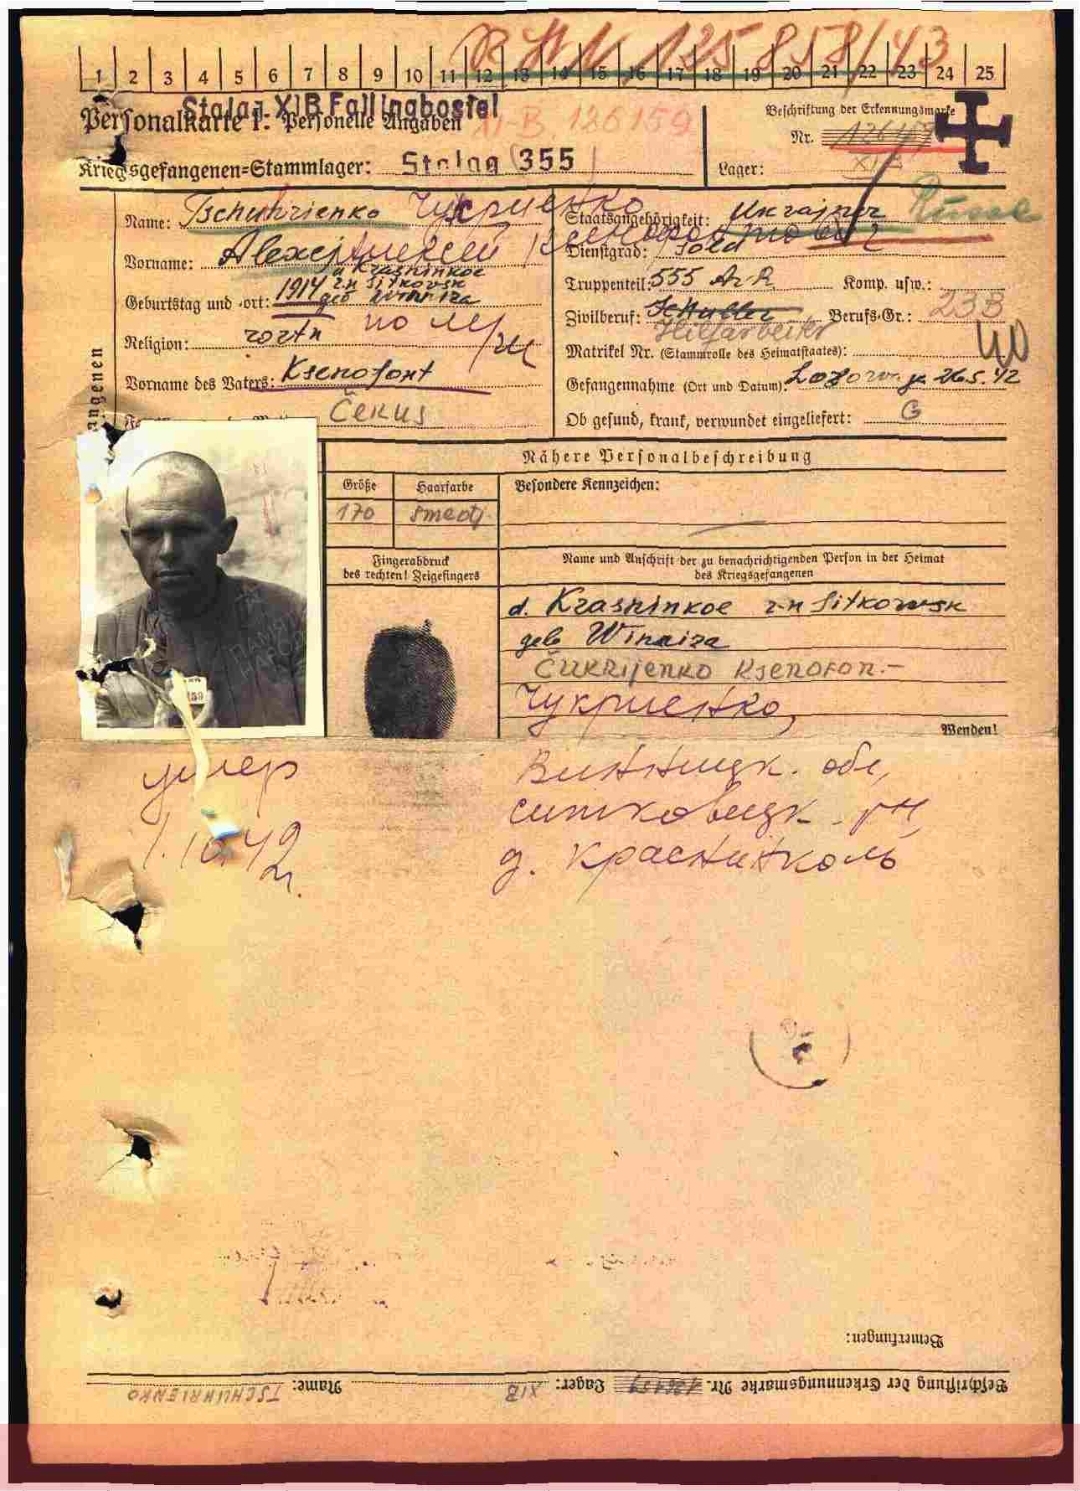 R.H.N. 125 858/43
1 2 3 4 5 6 7 8 9 10 11 12 13 14 15 16 17 18 19 20 21 22 23 24 25
Stalag XI B Fallingbostel
Personalkarte I: Personelle Angaben
XI-B 126159
Beschriftung der Erkennungsmarke
Nr.
Kriegsgefangenen-Stammlager: Stalag 355
Lager: XI B
Name: Tschuhrienko Чукриенко
Staatsangehörigkeit: Ukrajner
Vorname: Alexej Алексей
Dienstgrad: Sold
d Krasninkoe
Geburtstag und -ort: 1914 r.n Sitkowsk
geb Winniza
Truppenteil: 555 A.R. Komp. usw.:
Zivilberuf: Schuller Berufs-Gr.: 233
Hilfarbeiter
Religion: 
Matrikel Nr. (Stammrolle des Heimatstaates):
40
Vorname des Vaters: Ksenofont
Gefangennahme (Ort und Datum): 26.5.42
Čekus
Ob gesund, krank, verwundet eingeliefert: G
Nähere Personalbeschreibung
Größe Haarfarbe Besondere Kennzeichen:
170 smeđ
Fingerabdruck
des rechten! Zeigefingers
Name und Anschrift der zu benachrichtigenden Person in der Heimat
des Kriegsgefangenen
d. Krasninkoe r-n Sitkowsk
geb Winniza
Čukrijenko Ksenofon.-
Чукриенко,
Wenden!
умер
Винницк. обл,
1.10.42
г.
ситковецк. рн,
д. Красненколь
Bemerkungen:
Beschriftung der Erkennungsmarke Nr. Lager: XI B Name: TSCHUHRIENKO